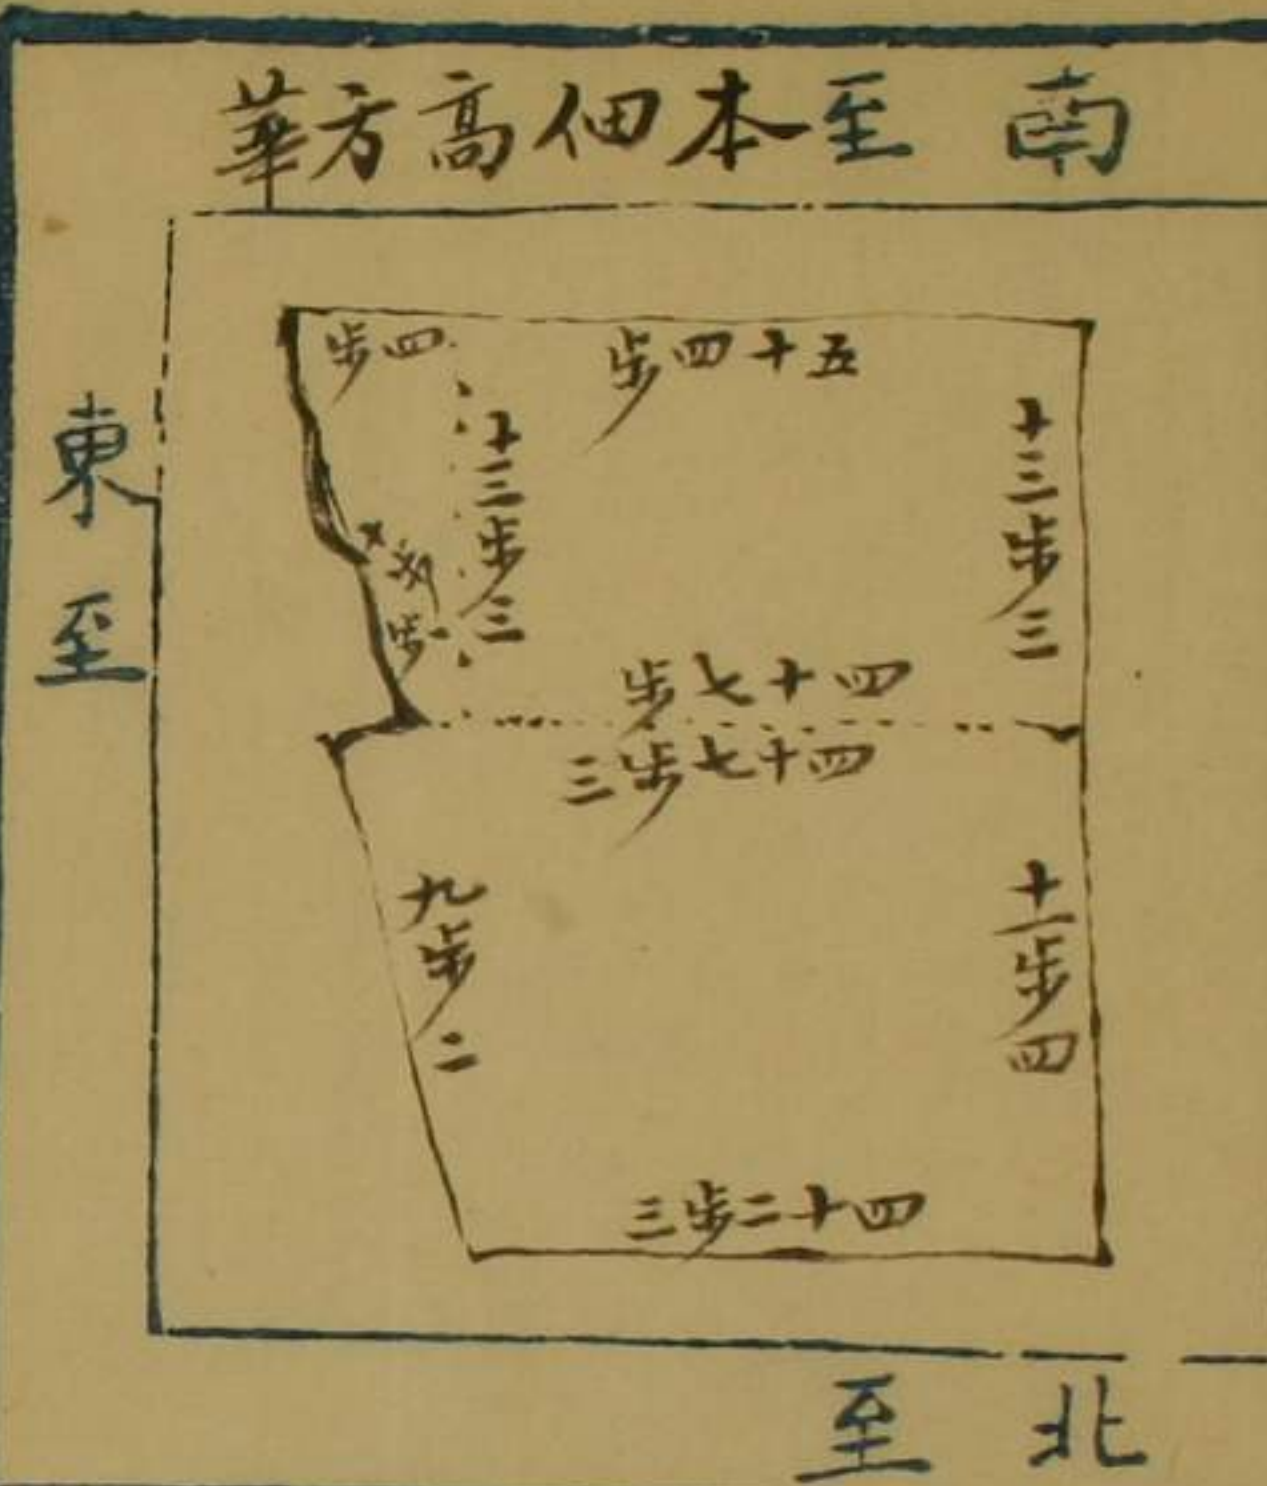 南至本佃高方華
東至
五十四步
四步
十三步三
十三步三
四十七步
四十七步三
十一步四
九步二
四十二步三
北至